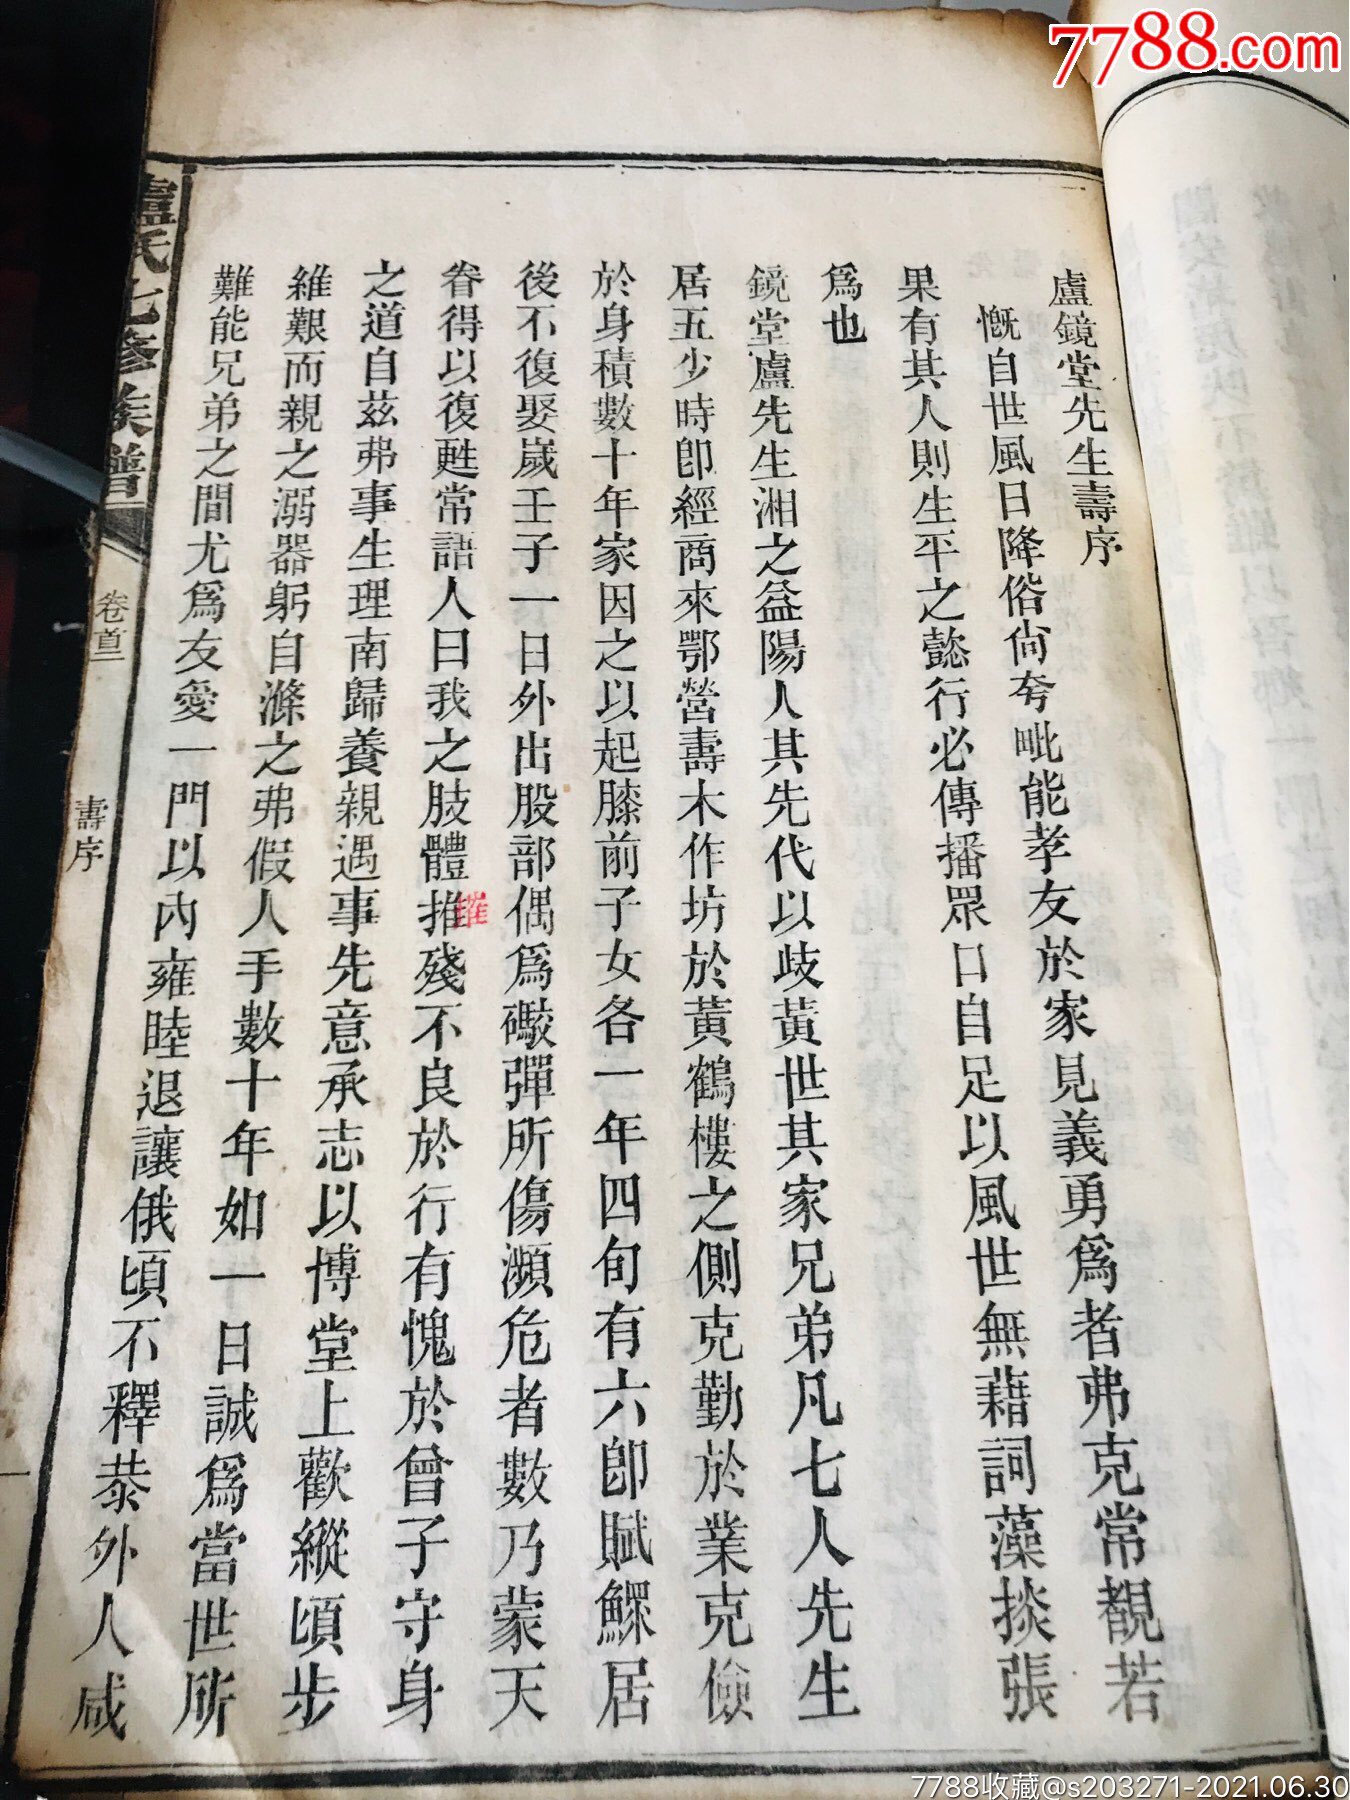 7788.com
盧鏡堂先生壽序
慨自世風日降俗尚夸毗能孝友於家見義勇爲者弗克常覩若
果有其人則生平之懿行必傳播眾口自足以風世無藉詞藻掞張
爲也
鏡堂盧先生湘之益陽人其先代以歧黃世其家兄弟凡七人先生
居五少時卽經商來鄂營壽木作坊於黃鶴樓之側克勤於業克儉
於身積數十年家因之以起膝前子女各一年四旬有六卽賦鰥居
後不復娶歲壬子一日外出股部偶爲礮彈所傷瀕危者數乃蒙天
眷得以復甦常語人曰我之肢體推殘不良於行有愧於曾子守身
摧
之道自茲弗事生理南歸養親遇事先意承志以博堂上歡縱頃步
維艱而親之溺器躬自滌之弗假人手數十年如一日誠爲當世所
難能兄弟之間尤爲友愛一門以內雍睦退讓俄頃不釋恭外人咸
盧氏七修族譜
卷首二
壽序
一
7788收藏@s203271-2021.06.30